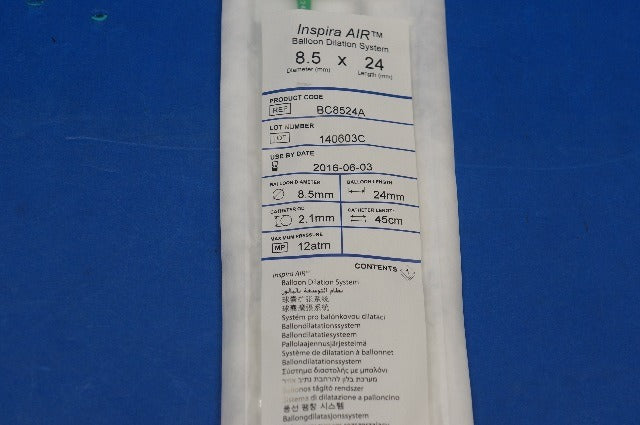 Inspira AIR™
Balloon Dilation System
8.5 x 24
Diameter (mm) Length (mm)
PRODUCT CODE
REF BC8524A
LOT NUMBER
LOT 140603C
USE BY DATE
2016-06-03
BALLOON DIAMETER BALLOON LENGTH
8.5mm 24mm
CATHETER OD CATHETER LENGTH
2.1mm 45cm
MAXIMUM PRESSURE
MP 12atm
CONTENTS 1
Inspira AIR™
Balloon Dilation System
نظام التوسعة بالبالون
球囊扩张系统
球囊擴張系統
Systém pro balónkovou dilataci
Ballondilatationssystem
Ballondilatatiesysteem
Pallolaajennusjärjestelmä
Système de dilatation à ballonnet
Ballondilatationssystem
Σύστημα διαστολής με μπαλόνι
מערכת בלון להרחבת נתיב אויר
ballonos tágító rendszer
Sistema di dilatazione a palloncino
풍선 팽창 시스템
Ballongdilatasjonssystem